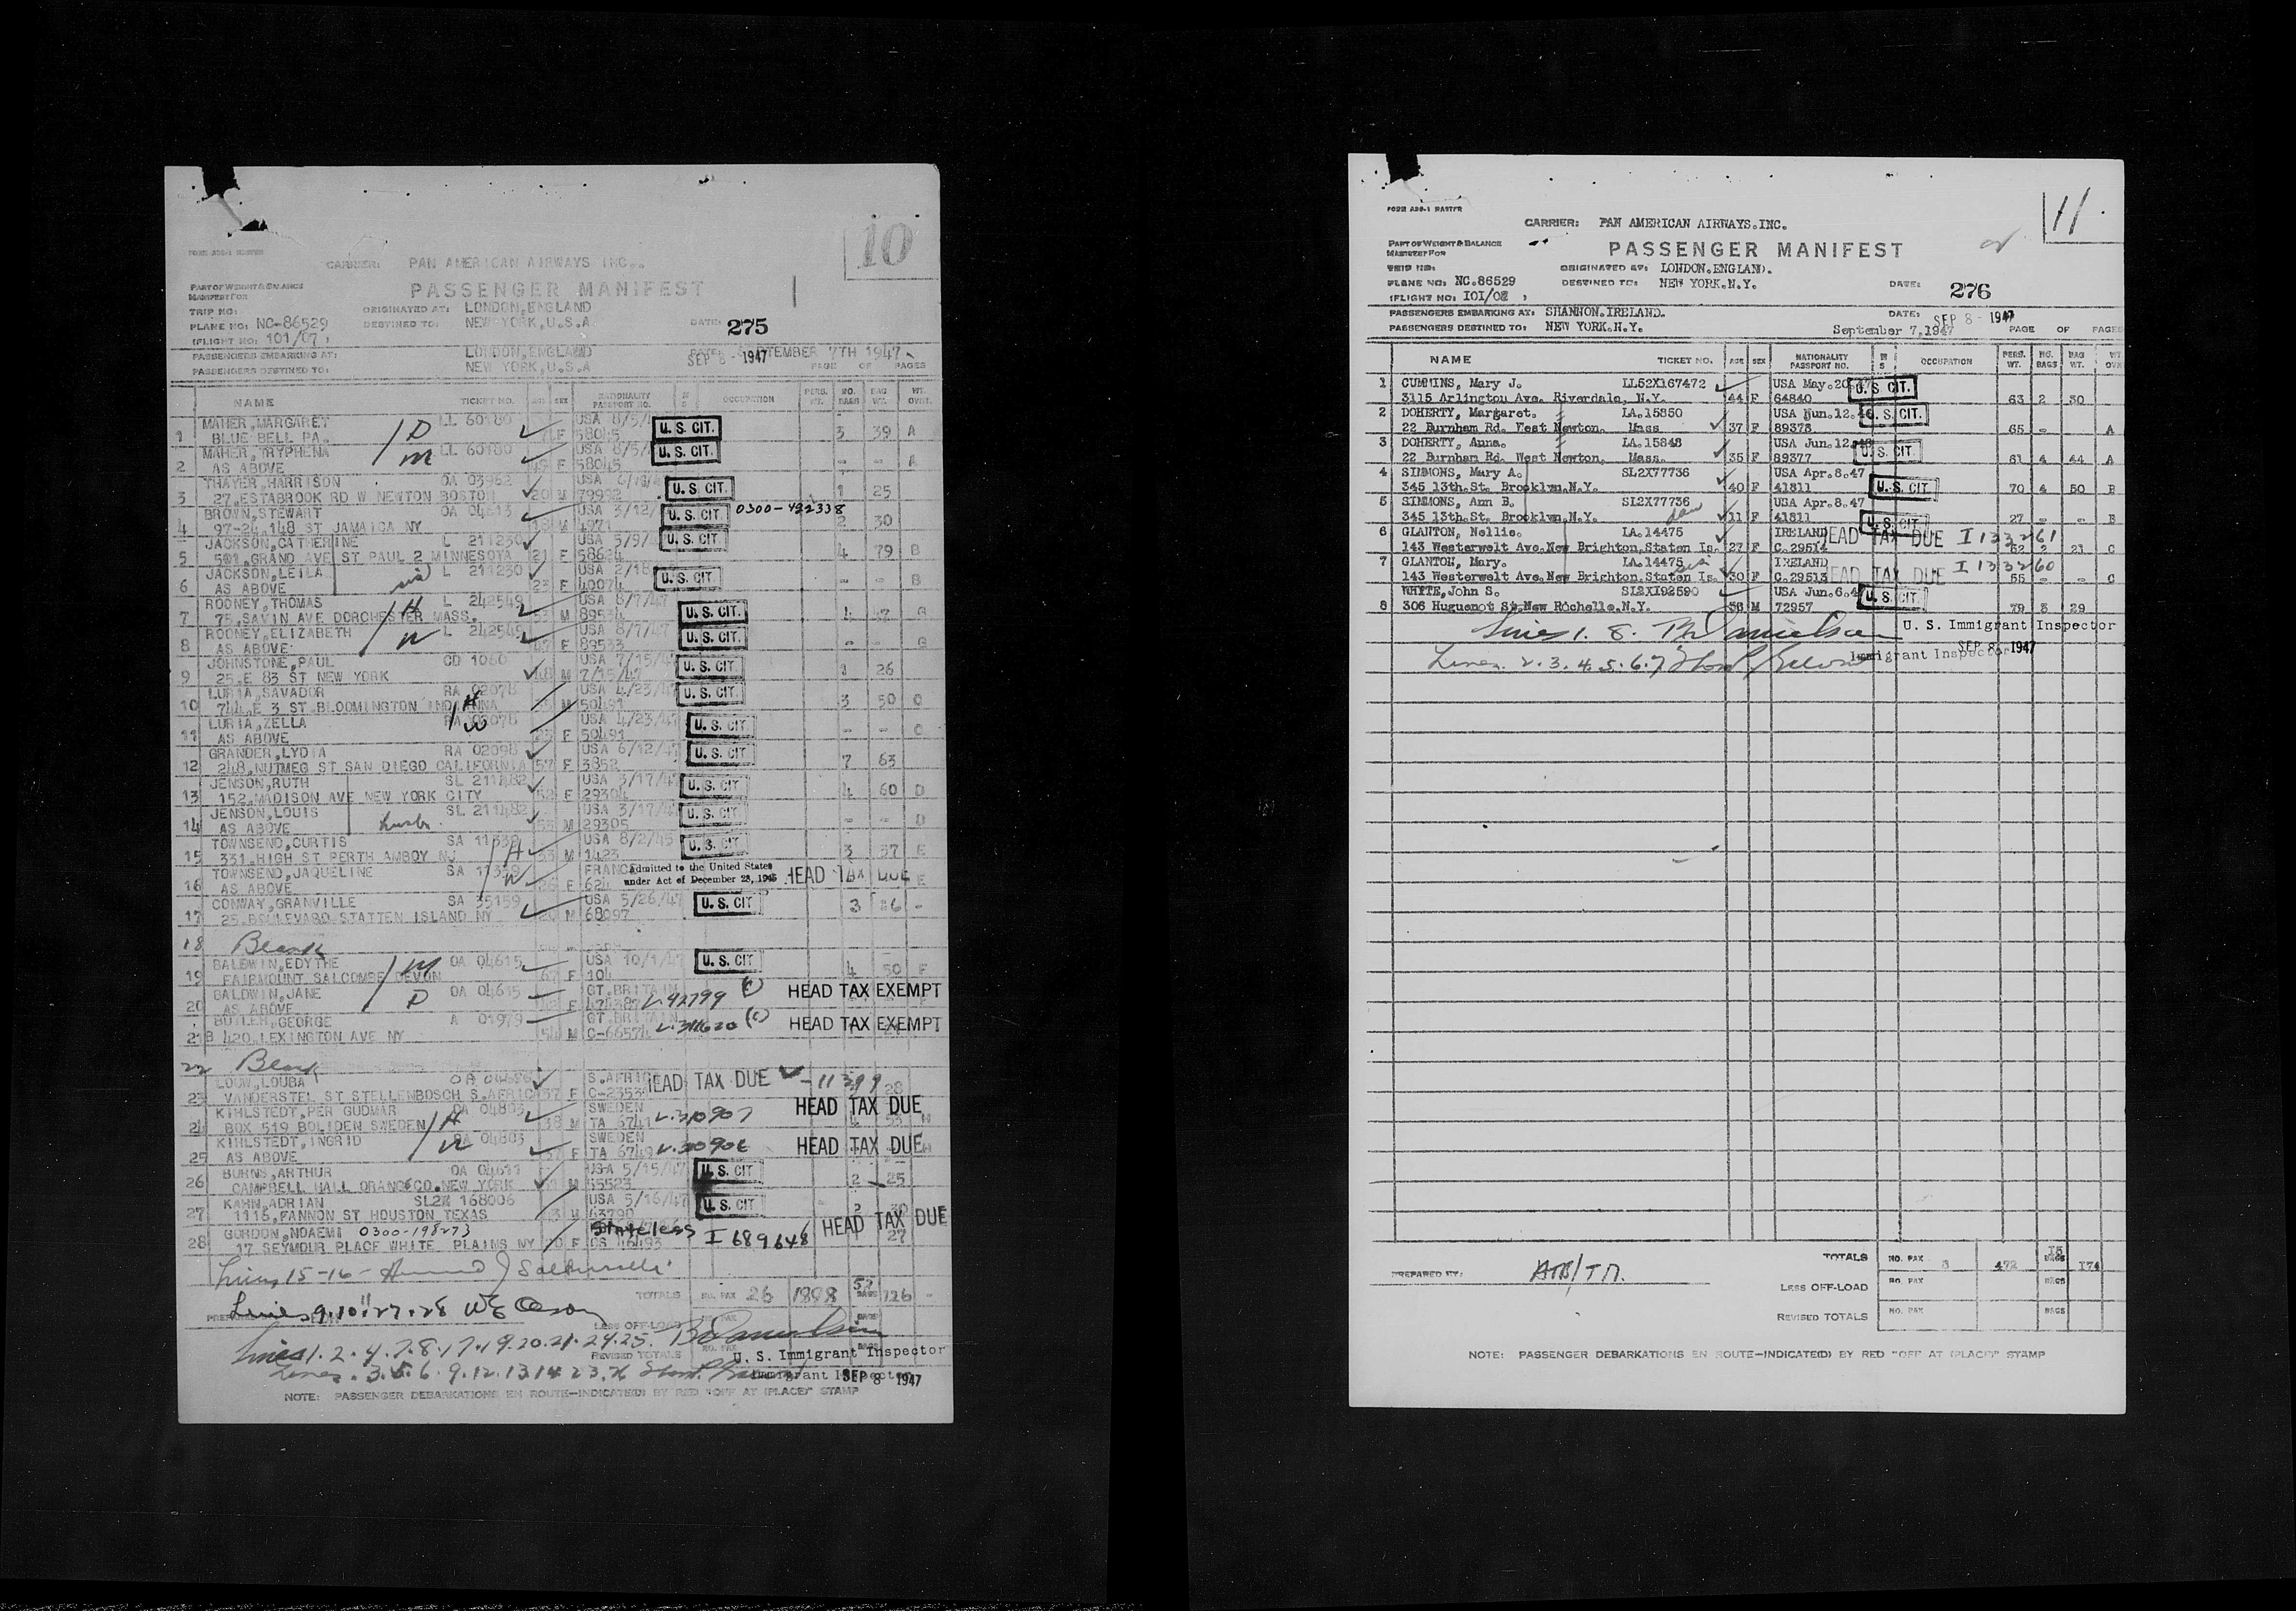 10
FORM ADS-1 MASTER
CARRIER: PAN AMERICAN AIRWAYS INC.
PART OF WEIGHT & BALANCE
PASSENGER MANIFEST
MANIFEST FOR
TRIP NO: ORIGINATED AT: LONDON, ENGLAND
PLANE NO: NC-86529 DESTINED TO: NEW YORK, U.S.A DATE: 275
(FLIGHT NO: 101/07)
PASSENGERS EMBARKING AT: LONDON, ENGLAND SEP 8 - 1947 SEPTEMBER 7TH 1947
PASSENGERS DESTINED TO: NEW YORK, U.S.A PAGE OF PAGES
NAME TICKET NO. AGE SEX NATIONALITY PASSPORT NO. OCCUPATION PERS. WT. NO. BAGS BAG WT. WT. OVR.
MAHER, MARGARET LL 60180 USA 8/5/4
1 BLUE BELL PA. D F 58045 U. S. CIT. 3 39 A
MAHER, TRYPHENA LL 60180 USA 8/5/
2 AS ABOVE M 49 F 58045 U. S. CIT. - - A
THAYER, HARRISON OA 03962 USA 6/
3 27, ESTABROOK RD W NEWTON BOSTON 20 M 79992 U. S. CIT. 1 25
BROWN, STEWART OA 04613 USA 3/12/ 0300-422338
4 97-24, 148 ST JAMAICA NY 18 M 4971 U. S. CIT. 2 30
JACKSON, CATHERINE L 211230 USA 5/9/4
5 501, GRAND AVE ST PAUL 2 MINNESOTA 21 F 58624 U. S. CIT. 4 79 B
JACKSON, LEILA sis L 211230 USA 2/18
6 AS ABOVE 23 F 40074 U. S. CIT. - - B
ROONEY, THOMAS H L 242549 USA 8/7/47
7 75, SAVIN AVE DORCHESTER MASS. 53 M 89534 U. S. CIT. 4 47 G
ROONEY, ELIZABETH W L 242549 USA 8/7/47
8 AS ABOVE 47 F 89533 U. S. CIT. - - G
JOHNSTONE, PAUL CD 1060 USA 7/15/4
9 25, E 83 ST NEW YORK 48 M 7/15/47 U. S. CIT. 1 26
LURIA, SAVADOR RA 02078 USA 4/23/4
10 744, E 3 ST BLOOMINGTON INDIANNA H M 50491 U. S. CIT. 3 50 O
LURIA, ZELLA RA 02078 USA 4/23/47
11 AS ABOVE W 23 F 50491 U. S. CIT. - - O
GRANDER, LYDIA RA 02098 USA 6/12/47
12 248, NUTMEG ST SAN DIEGO CALIFORNIA 57 F 3852 U. S. CIT 7 63
JENSON, RUTH SL 211482 USA 3/17/4
13 152, MADISON AVE NEW YORK CITY 52 F 29304 U. S. CIT 4 60 D
JENSON, LOUIS SL 211482 USA 3/17/4
14 AS ABOVE husb. 53 M 29305 U. S. CIT - - D
TOWNSEND, CURTIS SA 11339 USA 8/2/45
15 331, HIGH ST PERTH AMBOY NJ H 33 M 1423 U. S. CIT 3 37 E
TOWNSEND, JAQUELINE SA 11339 FRANCE Admitted to the United States HEAD TAX DUE
16 AS ABOVE W 26 F 624 under Act of December 28, 1945 E
CONWAY, GRANVILLE SA 35159 USA 5/26/47
17 25, BOULEVARD STATTEN ISLAND NY 20 M 68097 U. S. CIT 3 36 -
18 Blank
BALDWIN, EDYTHE M OA 04615 USA 10/1/4
19 FAIRMOUNT SALCOMBE DEVON 67 F 104 U. S. CIT 4 50 F
BALDWIN, JANE OA 04615 GT. BRITAIN HEAD TAX EXEMPT
20 AS ABOVE D F 474387 V-92799
BUTLER, GEORGE A 01979 GT. BRITAIN HEAD TAX EXEMPT
21 B 420, LEXINGTON AVE NY 54 M C-66574 (C)
22 Blank
LOUW, LOUBA OA 04696 S. AFRIC HEAD TAX DUE -11399
23 VANDERSTEL ST STELLENBOSCH S. AFRICA 57 F C-23534 28
KIHLSTEDT, PER GUDMAR OA 04803 SWEDEN HEAD TAX DUE
24 BOX 519 BOLIDEN SWEDEN H 38 M TA 6741 V-310907 4 53 H
KIHLSTEDT, INGRID OA 04803 SWEDEN HEAD TAX DUE
25 AS ABOVE W 37 F TA 6749 V-310906 H
BURNS, ARTHUR OA 04611 USA 5/15/47
26 CAMPBELL HALL ORANGE CO. NEW YORK M 55523 U. S. CIT 2 25
KAHN, ADRIAN SL2X 168006 USA 5/16/47
27 1116, FANNON ST HOUSTON TEXAS 43 M 63790 U. S. CIT 2 30
GORDON, NOAEMI 0300-198273 Stateless I 689648 HEAD TAX DUE
28 17 SEYMOUR PLACE WHITE PLAINS NY F 27
Lines 15-16-
TOTALS NO. PAX 26 1898 52 BAGS 726 -
Lines 9.10.11.27.28
LESS OFF-LOAD
Lines 1.2.4.7.8.17.19.20.21.24.25.
REVISED TOTALS NO. PAX BAGS
U. S. Immigrant Inspector
Lines. 3.5.6.9.12.13.14.23.26
Immigrant Inspector SEP 8 1947
NOTE: PASSENGER DEBARKATIONS EN ROUTE-INDICATE(D) BY RED "OFF AT (PLACE)" STAMP
11.
FORM ADS-1 MASTER
CARRIER: PAN AMERICAN AIRWAYS. INC.
PART OF WEIGHT & BALANCE
PASSENGER MANIFEST
MANIFEST FOR
TRIP NO: ORIGINATED AT: LONDON. ENGLAND.
PLANE NO: NC.86529 DESTINED TO: NEW YORK. N.Y. DATE: 276
(FLIGHT NO: 101/07)
PASSENGERS EMBARKING AT: SHANNON. IRELAND. DATE: SEP 8 - 1947
PASSENGERS DESTINED TO: NEW YORK. N.Y. September 7, 1947 PAGE OF PAGES
NAME TICKET NO. AGE SEX NATIONALITY PASSPORT NO. OCCUPATION PERS. WT. NO. BAGS BAG WT. WT. OVR
1 CUMMINS, Mary J. LL52X167472 USA May.20.47 U. S. CIT.
3115 Arlington Ave. Riverdale, N.Y. 44 F 64840 63 2 30
2 DOHERTY, Margaret. LA.15850 USA Jun.12.46 U. S. CIT.
22 Burnham Rd. West Newton. Mass 37 F 89378 65 - A
3 DOHERTY, Anna. LA.15848 USA Jun.12.46 U. S. CIT.
22 Burnham Rd. West Newton, Mass. 35 F 89377 61 4 44 A
4 SIMMONS, Mary A. SL2X77736 USA Apr.8.47
345 13th. St. Brooklyn. N.Y. 40 F 41811 U. S. CIT 70 4 50 B
5 SIMMONS, Ann B. SL2X77736 USA Apr.8.47
345 13th. St. Brooklyn. N.Y. dau 11 F 41811 U. S. CIT 27 - - B
6 GLANTON, Nellie. LA.14475 IRELAND HEAD TAX DUE I 133261
143 Westerwelt Ave. New Brighton. Staten Is. 27 F C.29514 62 2 21 C
7 GLANTON, Mary. LA.14475 IRELAND I 133260
143 Westerwelt Ave. New Brighton. Staten Is. sis 30 F C.29513 HEAD TAX DUE 55 - - C
WHYTE, John S. SL2X192590 USA Jun.6.47
8 306 Huguenot St. New Rochelle. N.Y. 56 M 72957 U. S. CIT 79 3 29
Lines 1. 8. U. S. Immigrant Inspector
Lines. 2.3.4.5.6.7 Immigrant Inspector SEP 8 1947
TOTALS NO. PAX 8 472 15 BAGS 174
PREPARED BY: ATB/TM.
LESS OFF-LOAD NO. PAX BAGS
REVISED TOTALS NO. PAX BAGS
NOTE: PASSENGER DEBARKATIONS EN ROUTE-INDICATE(D) BY RED "OFF AT (PLACE)" STAMP